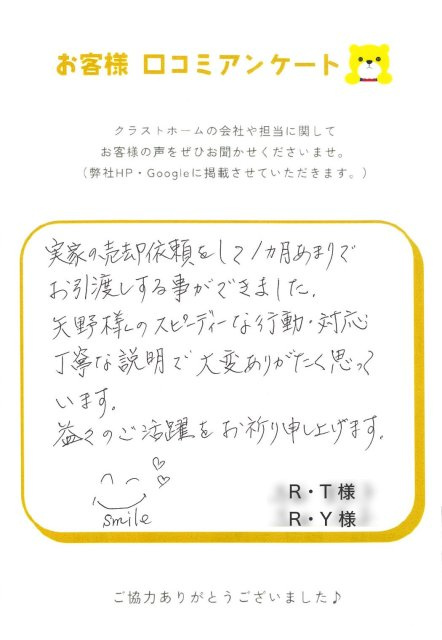 お客様 口コミアンケート
クラストホームの会社や担当に関して
お客様の声をぜひお聞かせくださいませ。
（弊社HP・Googleに掲載させていただきます。）
実家の売却依頼をして1ヵ月あまりで
お引渡しする事ができました。
矢野様のスピーディーな行動・対応
丁寧な説明で大変ありがたく思って
います。
益々のご活躍をお祈り申し上げます。
smile
R・T 様
R・Y 様
ご協力ありがとうございました♪